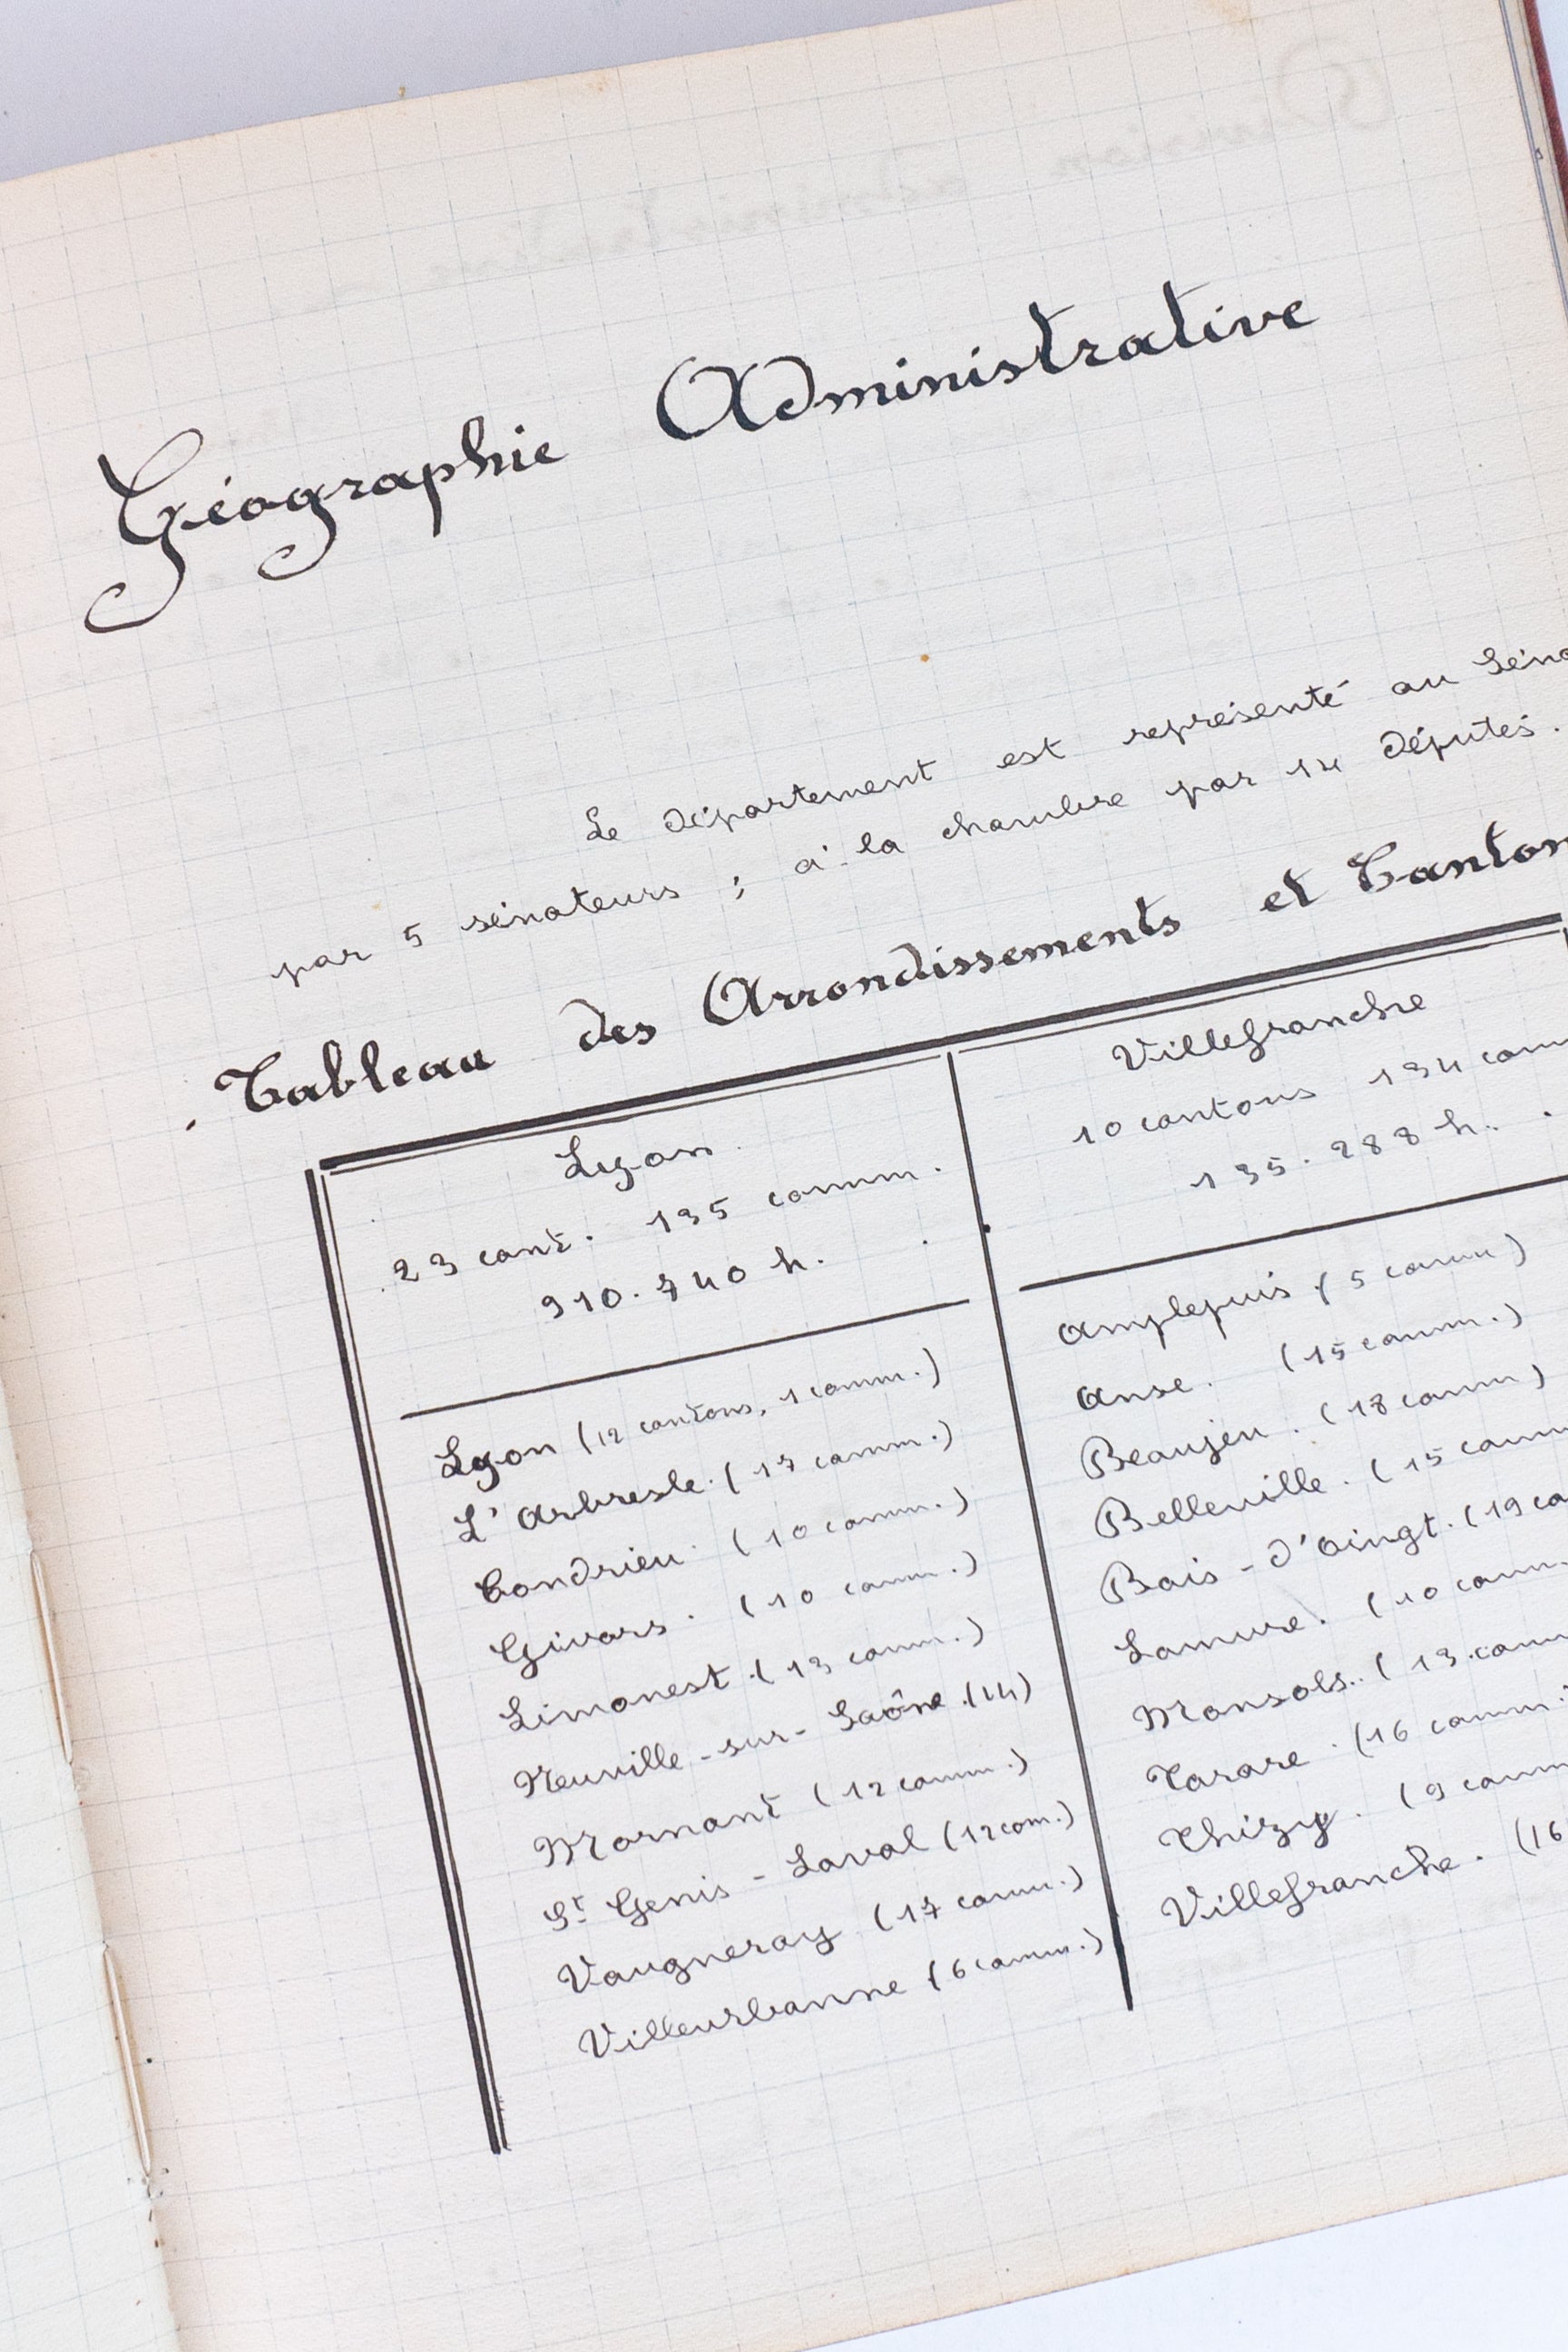 Géographie Administrative
Le Département est représenté au Séna
par 5 sénateurs ; à la chambre par 14 Députés.
Tableau des Arrondissements et Canton
Lyon
23 cant. 135 comm.
910.740 h.
Lyon (12 cantons, 1 comm.)
L'Arbresle. (17 comm.)
Condrieu. (10 comm.)
Givors. (10 comm.)
Limonest. (13 comm.)
Neuville-sur-Saône. (14)
Mornant (12 comm.)
St Genis-Laval (12 com.)
Vaugneray (17 comm.)
Villeurbanne (6 comm.)
Villefranche
10 cantons 134 com
135.288 h.
Amplepuis. (5 comm)
Anse. (15 comm.)
Beaujeu. (18 comm)
Belleville. (15 comm
Bois-d'Oingt. (19 co
Lamure. (10 comm.
Monsols. (13 comm
Tarare. (16 comm.
Thizy. (9 comm
Villefranche. (16